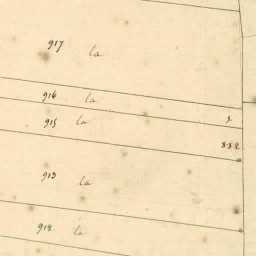 917 la
916 la
915 la
913 la
912 la